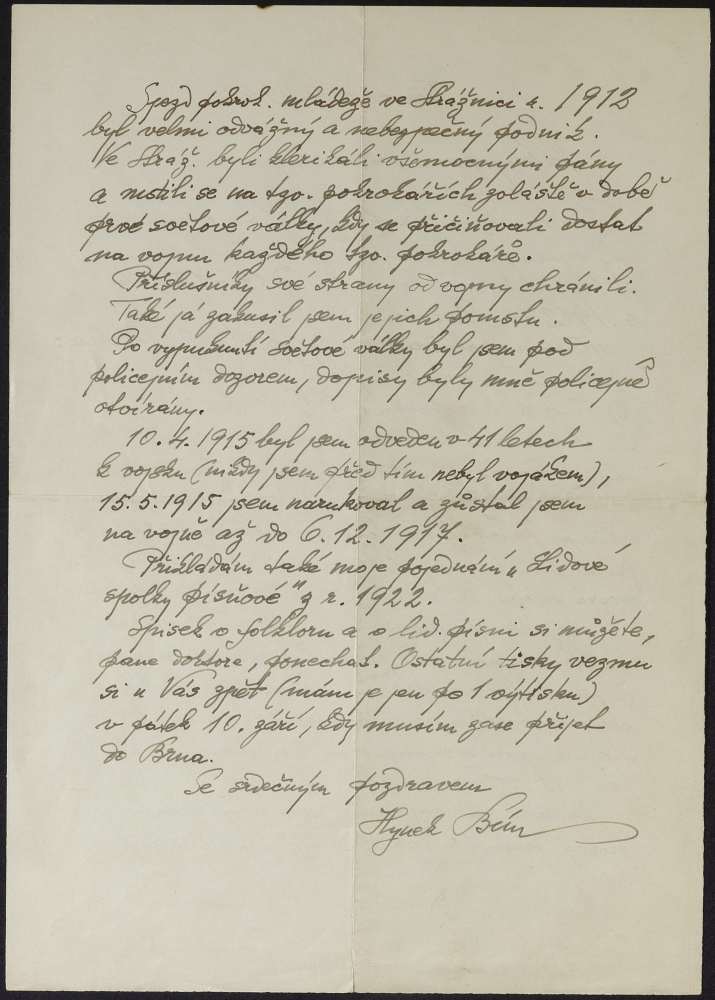 Sjezd pokrok. mládeže ve Strážnici r. 1912
byl velmi odvážný a nebezpečný podnik.
Ve Stráž. byli klerikáli všemocnými pány
a mstili se na tzv. pokrokářích zvláště v době
prvé světové války, kdy se přičiňovali dostat
na vojnu každého tzv. pokrokáře.
Příslušníky své strany od vojny chránili.
Také já zakusil jsem jejich pomstu.
Po vypuknutí světové války byl jsem pod
policejním dozorem, dopisy byly mně policejně
otvírány.
10. 4. 1915 byl jsem odveden v 41 letech
k vojsku (nikdy jsem před tím nebyl vojákem),
15. 5. 1915 jsem narukoval a zůstal jsem
na vojně až do 6. 12. 1917.
Přikládám také moje pojednání „Lidové
spolky písňové" z r. 1922.
Spisek o folkloru a o lid. písni si můžete,
pane doktore, ponechat. Ostatní tisky vezmu
si u Vás zpět (mám je jen po 1 výtisku)
v pátek 10. září, kdy musím zase přijet
do Brna.
Se srdečným pozdravem
Hynek Bím